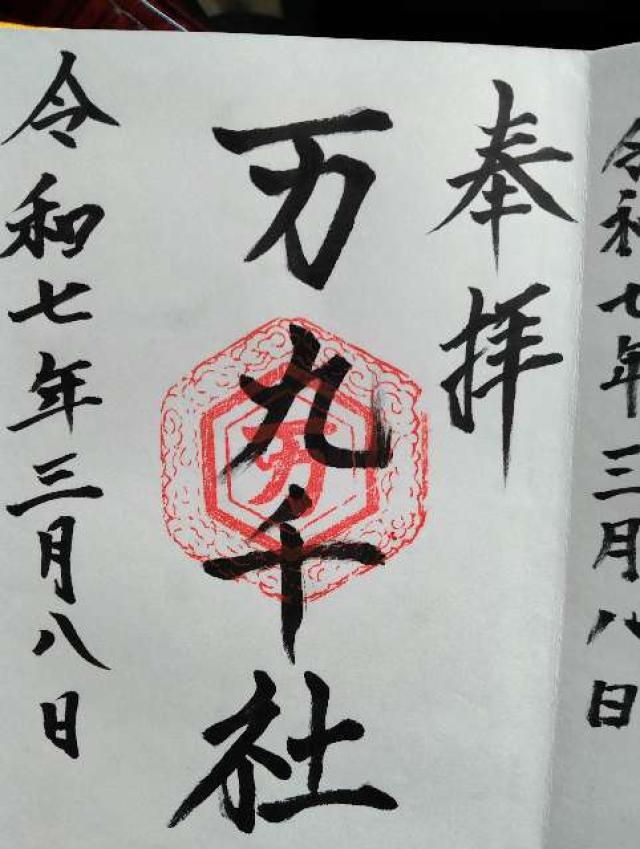 令和七年三月八日
奉拝
万九千社
万
令和七年三月八日